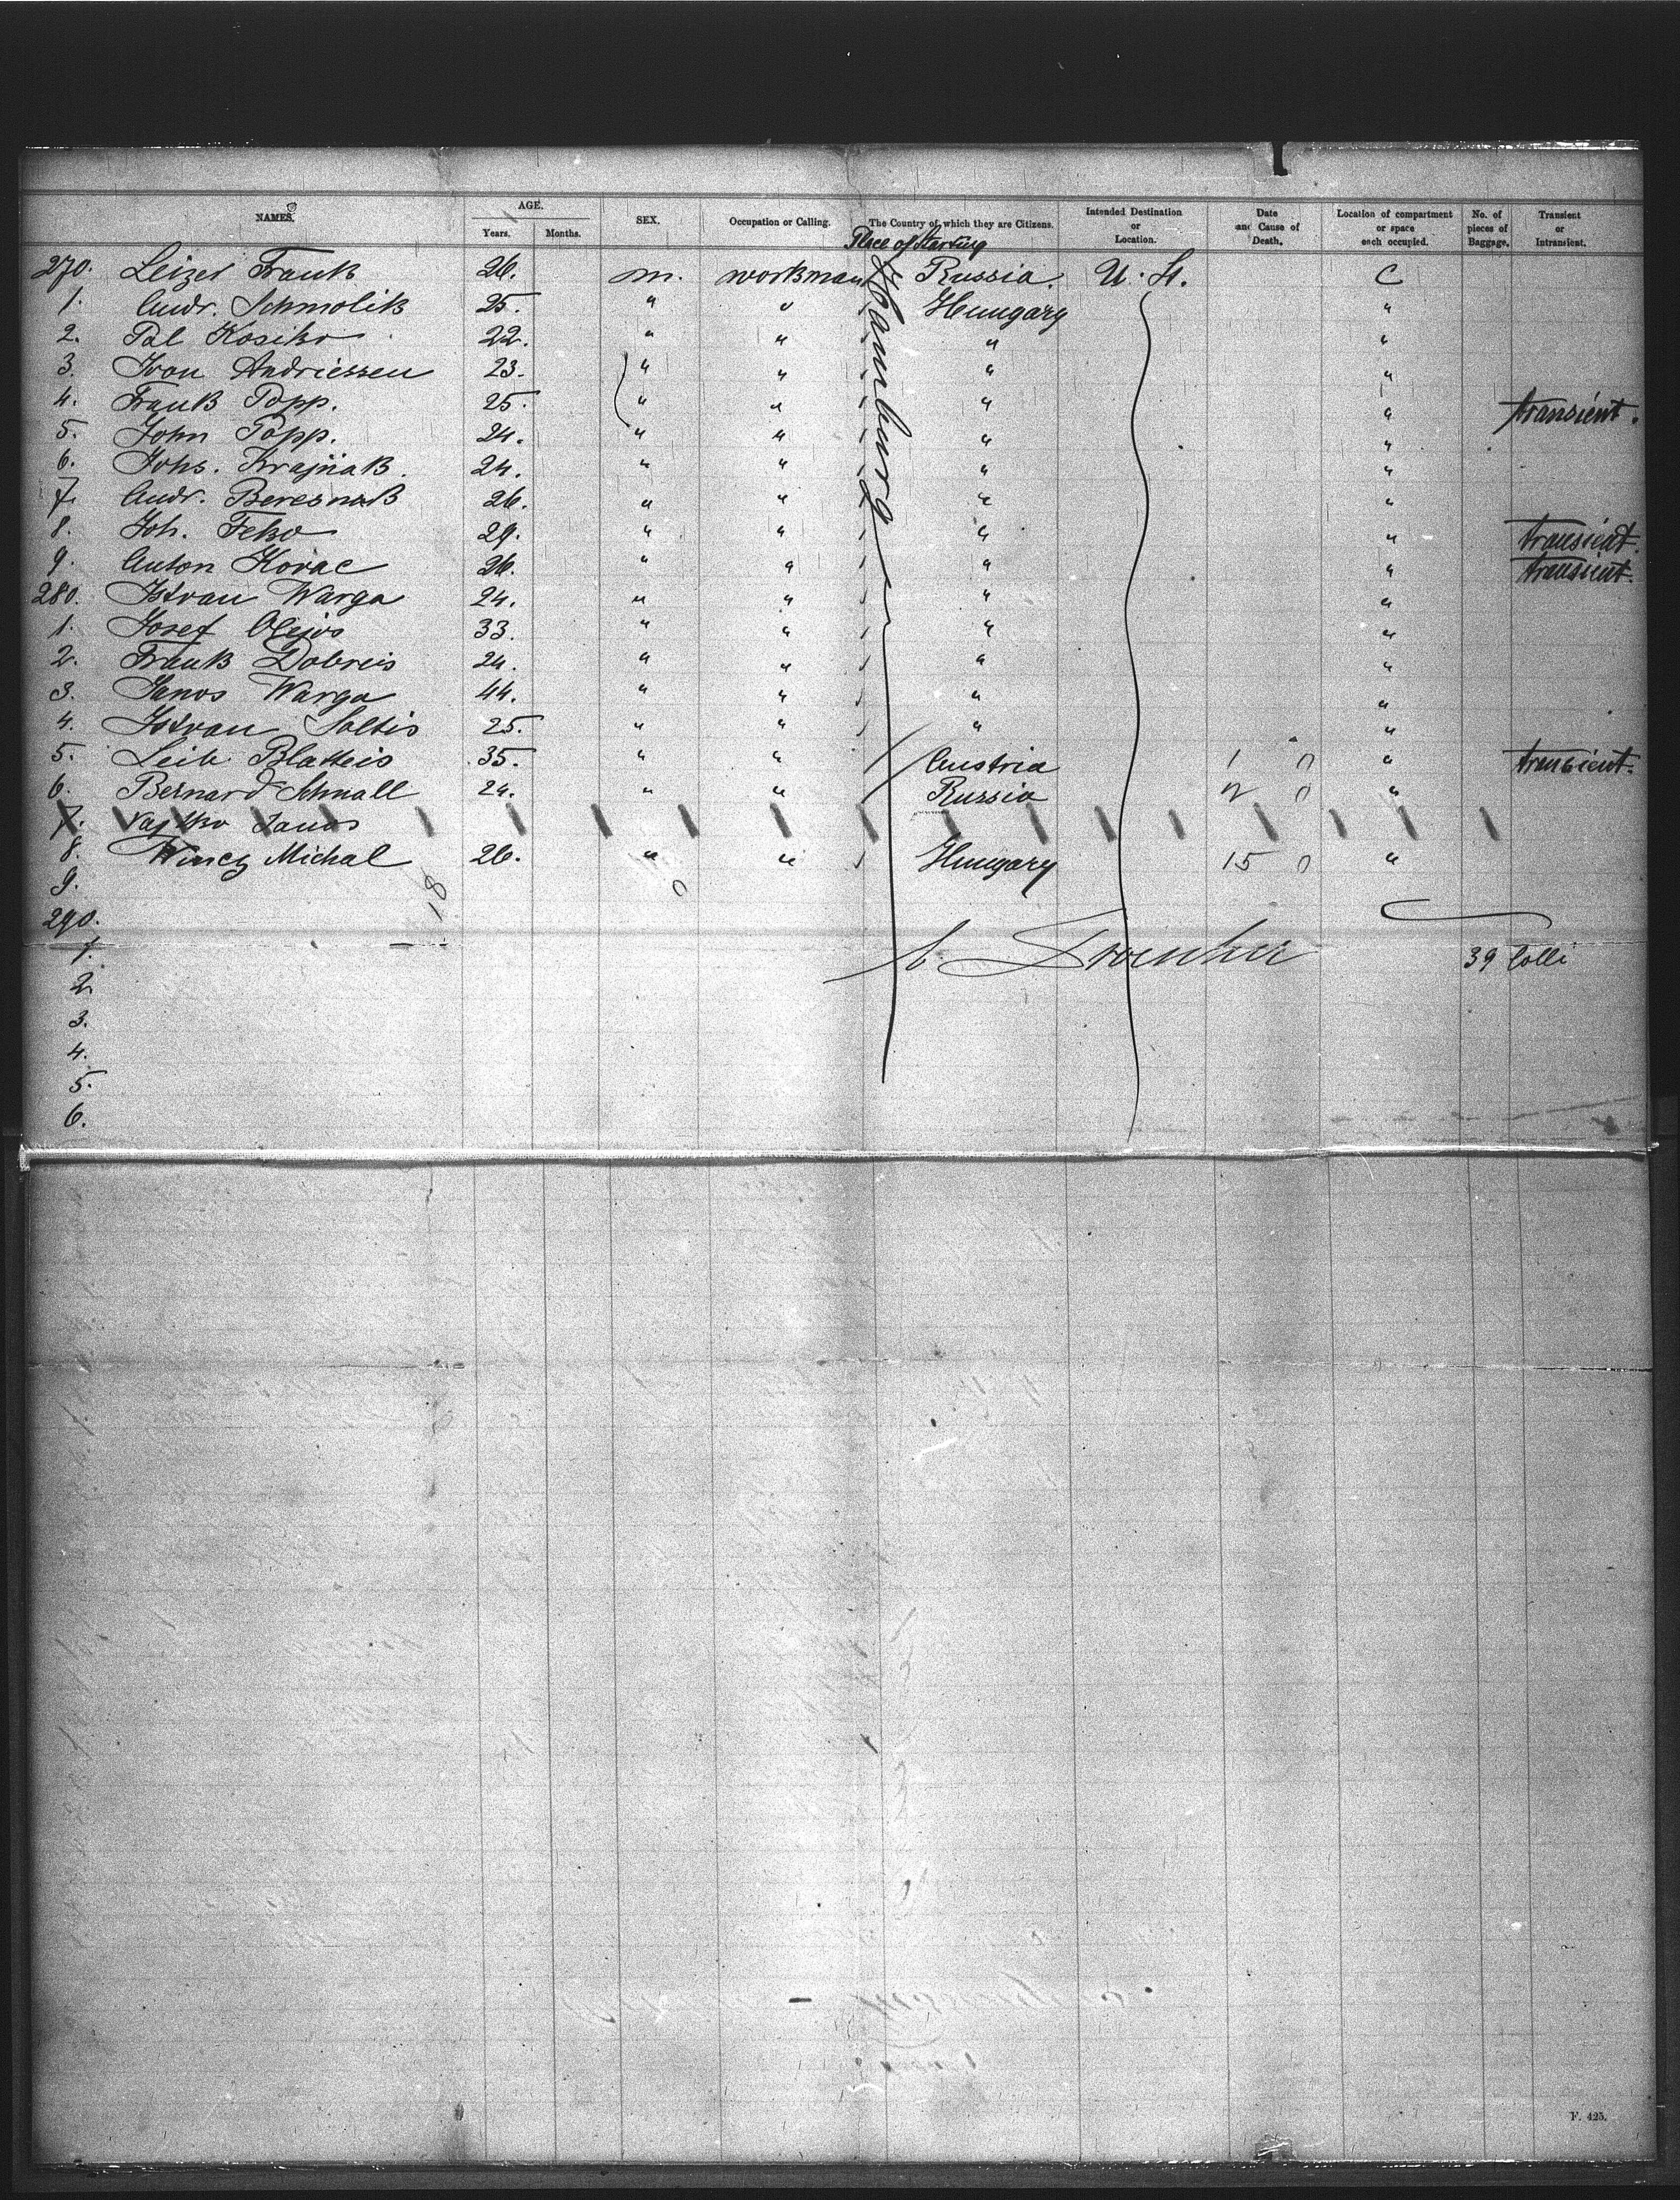 NAMES. AGE. Years. Months. SEX. Occupation or Calling. The Country of which they are Citizens. Intended Destination or Location. Date and Cause of Death. Location of compartment or space each occupied. No. of pieces of Baggage. Transient or Intransient.
Place of starting
Hamburg
270. Leizer Frank 26. m. workman Russia. U. St. C
1. Andr. Schmolik 25. " " Hungary "
2. Pal Kosiko 22. " " " "
3. Ivan Andriessen 23. " " " "
4. Frank Popp. 25. " " " " transient.
5. John Popp. 24. " " " "
6. Johs. Krajnak. 24. " " " "
7. Andr. Beresnak 26. " " " "
8. Joh. Feko 29. " " " " transient.
9. Anton Kovac 26. " " " " transient.
280. Istvan Warga 24. " " " "
1. Josef 33. " " " "
2. Frank Dobreis 24. " " " "
3. Janos Warga 44. " " " "
4. Istvan Soltis 25. " " " "
5. Leib Blatteis 35. " " Austria 1 0 " transient.
6. Bernard Schnall 24. " " Russia 2 0 "
7. Janos
8. Wincz Michal 26. " " Hungary 15 0 "
9. 18 0
290.
1. 39 Colli
2.
3.
4.
5.
6.
F. 425.